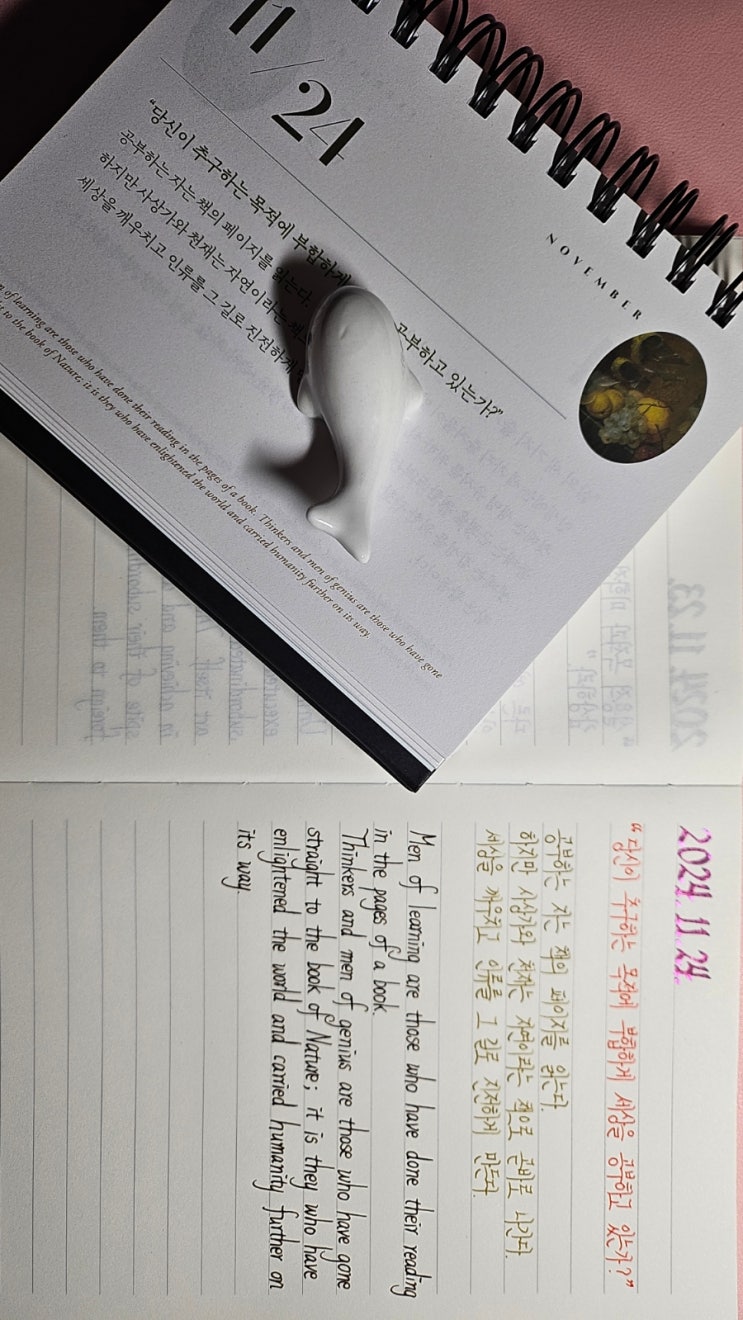 11/24
NOVEMBER
"당신이 추구하는 목적에 부합하게 공부하고 있는가?"
공부하는 자는 책의 페이지를 읽는다.
하지만 사상가와 천재는 자연이라는
세상을 깨우치고 인류를 그 길로 진전하게
of learning are those who have done their reading in the pages of a book. Thinkers and men of genius are those who have gone
to the book of Nature; it is they who have enlightened the world and carried humanity further on its way.
2024. 11. 24.
"당신이 추구하는 목적에 부합하게 세상을 공부하고 있는가?"
공부하는 자는 책의 페이지를 읽는다.
하지만 사상가와 천재는 자연이라는 책으로 곧바로 나간다.
세상을 깨우치고 인류를 그 길로 진전하게 만든다.
Men of learning are those who have done their reading
in the pages of a book.
Thinkers and men of genius are those who have gone
straight to the book of Nature; it is they who have
enlightened the world and carried humanity further on
its way.